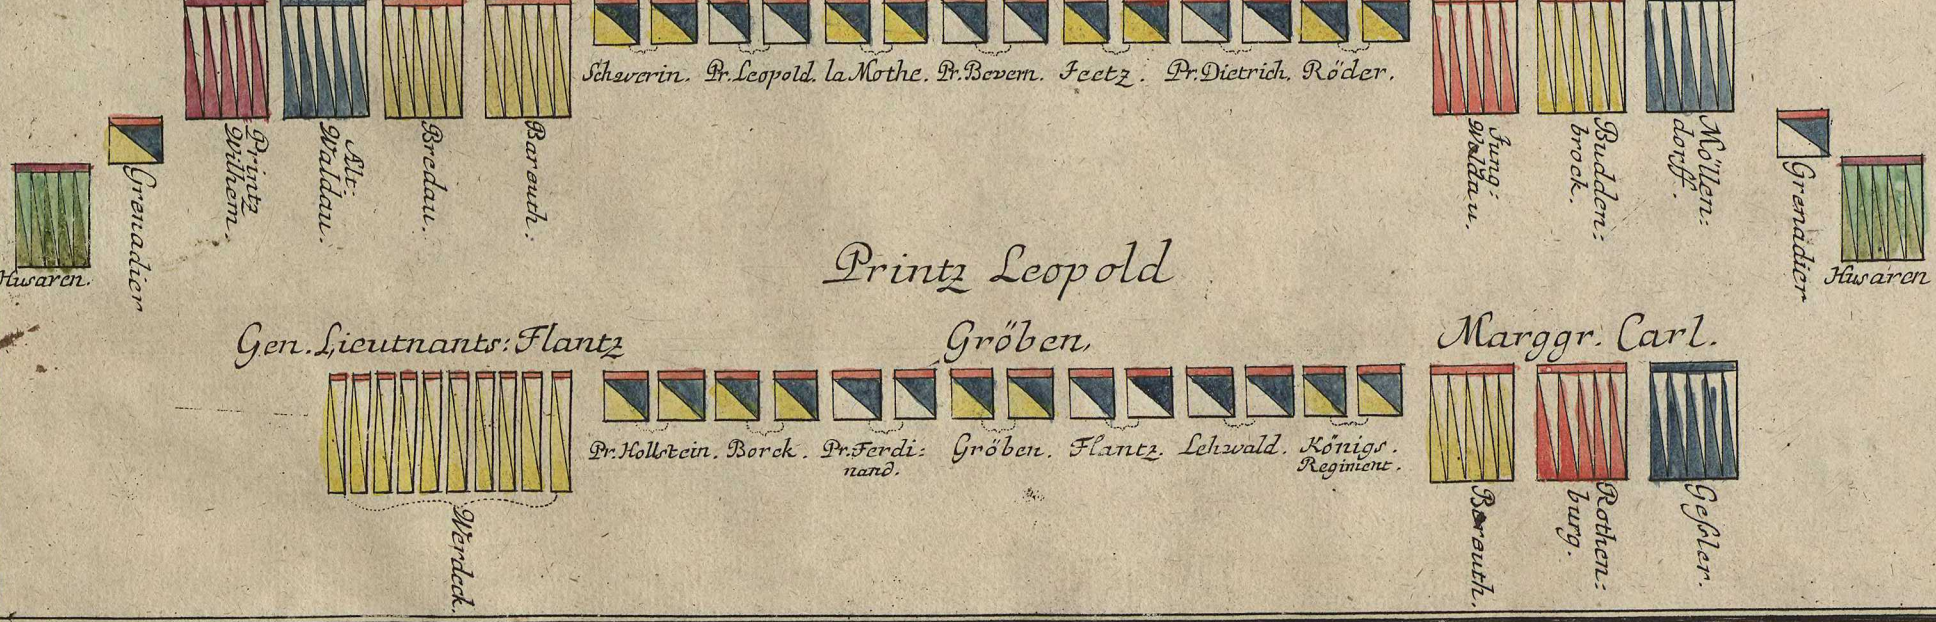 Schwerin. Pr. Leopold. la Mothe. Pr. Bevern. Jeetz. Pr. Dietrich. Röder.
Printz
Wilhem.
Alt:
Waldau.
Bredau.
Bareuth:
Jung:
Waldau.
Budden:
brock.
Möllen:
dorff.
Grenadier
Husaren.
Grenadier
Husaren
Printz Leopold
Gen. Lieutnants: Flantz
Gröben,
Marggr. Carl.
Pr. Hollstein. Borck. Pr. Ferdi:
nand.
Gröben. Flantz. Lehwald. Königs.
Regiment.
Werdeck.
Bareuth.
Rothen:
burg.
Geßler.